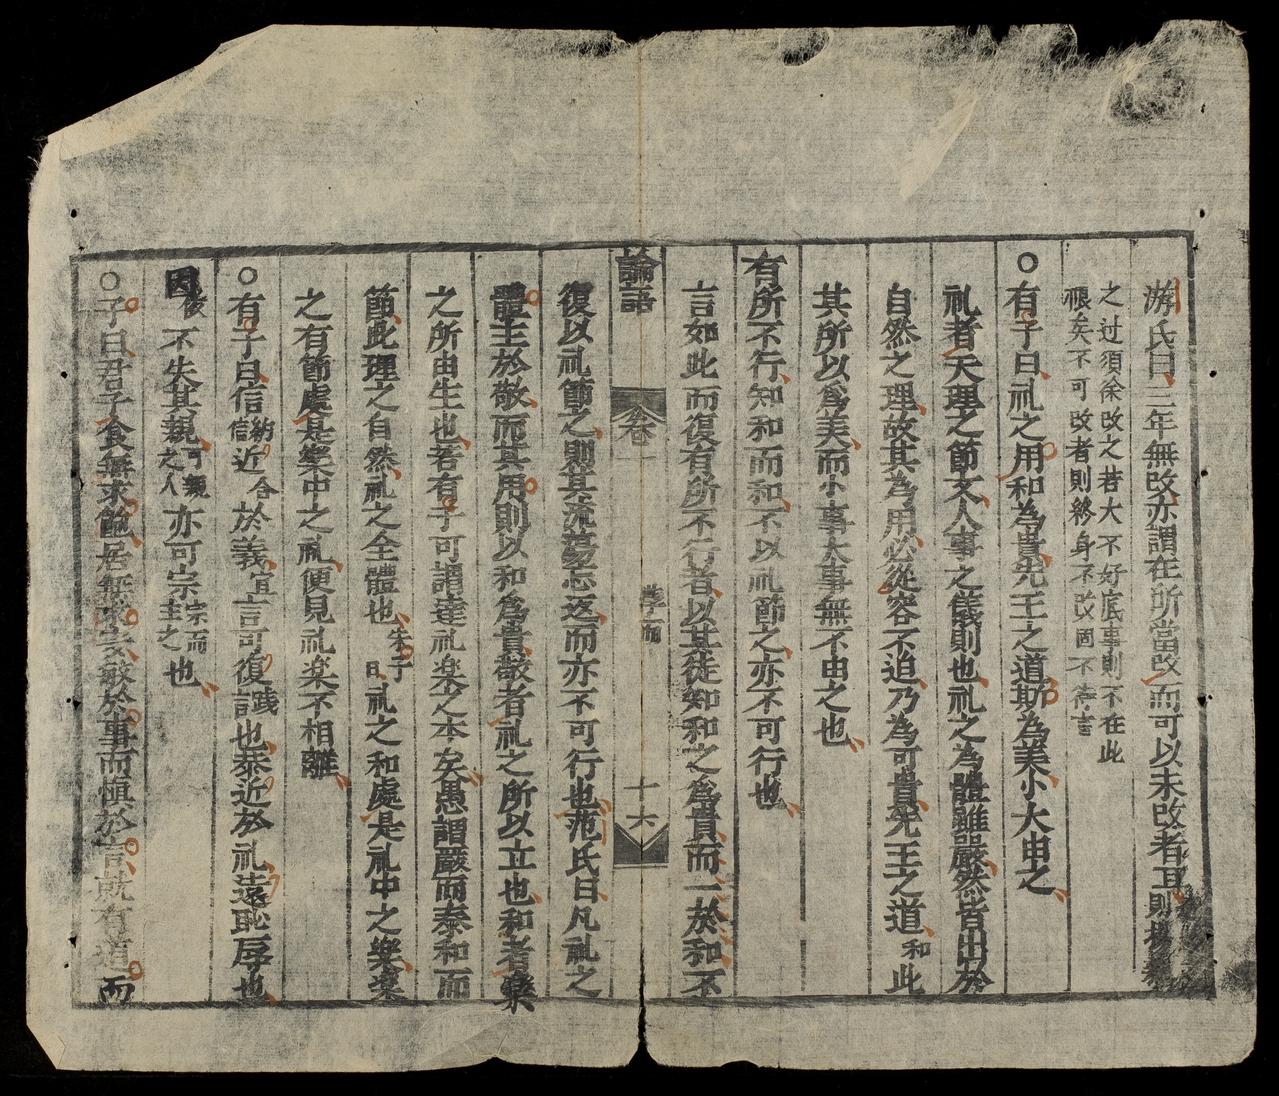 游氏曰三年無改亦謂在所當改而可以未改者耳
之过須徐改之若大不好底事則不在此
限矣不可改者則終身不改固不待言
○有子曰礼之用和為貴先王之道斯為美小大由之
礼者天理之節文人事之儀則也礼之為體雖嚴然皆出於
自然之理故其為用必從容不迫乃為可貴先王之道和此
其所以爲美而小事大事無不由之也
有所不行知和而和不以礼節之亦不可行也
言如此而復有所不行者以其徒知和之爲貴而一於和不
論語 卷一 學而 十六
復以礼節之則其流蕩忘返而亦不可行也范氏曰凡礼之
體主於敬而其用則以和爲貴敬者礼之所以立也和者樂
之所由生也若有子可謂達礼楽之本矣愚謂嚴而泰和而
節此理之自然礼之全體也朱子曰礼之和處是礼中之樂樂
之有節處是樂中之礼便見礼楽不相離
○有子曰信約信近合於義宜言可復踐言也恭近於礼遠恥辱也
因依不失其親可親之人亦可宗宗而主之也
○子曰君子食無求飽居無求安敏於事而慎於言就有道而